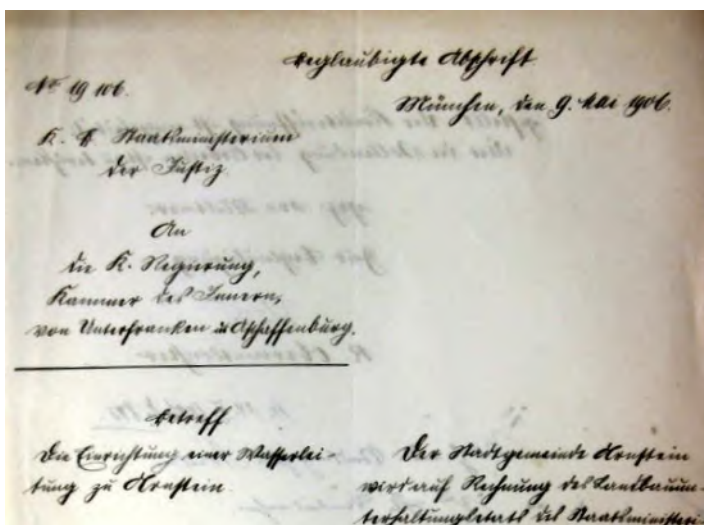 beglaubigte Abschrift.
No 19 106.
München, den 9. Mai 1906.
K. B. Staatsministerium
der Justiz.
An
die K. Regierung,
Kammer des Innern,
von Unterfranken u Aschaffenburg.
Betreff
Die Einrichtung einer Wasserlei-
tung zu Arnstein.
Der Stadtgemeinde Arnstein
wird auf Rechnung des Landbauun-
terhaltungsetats des Staatsministeri-